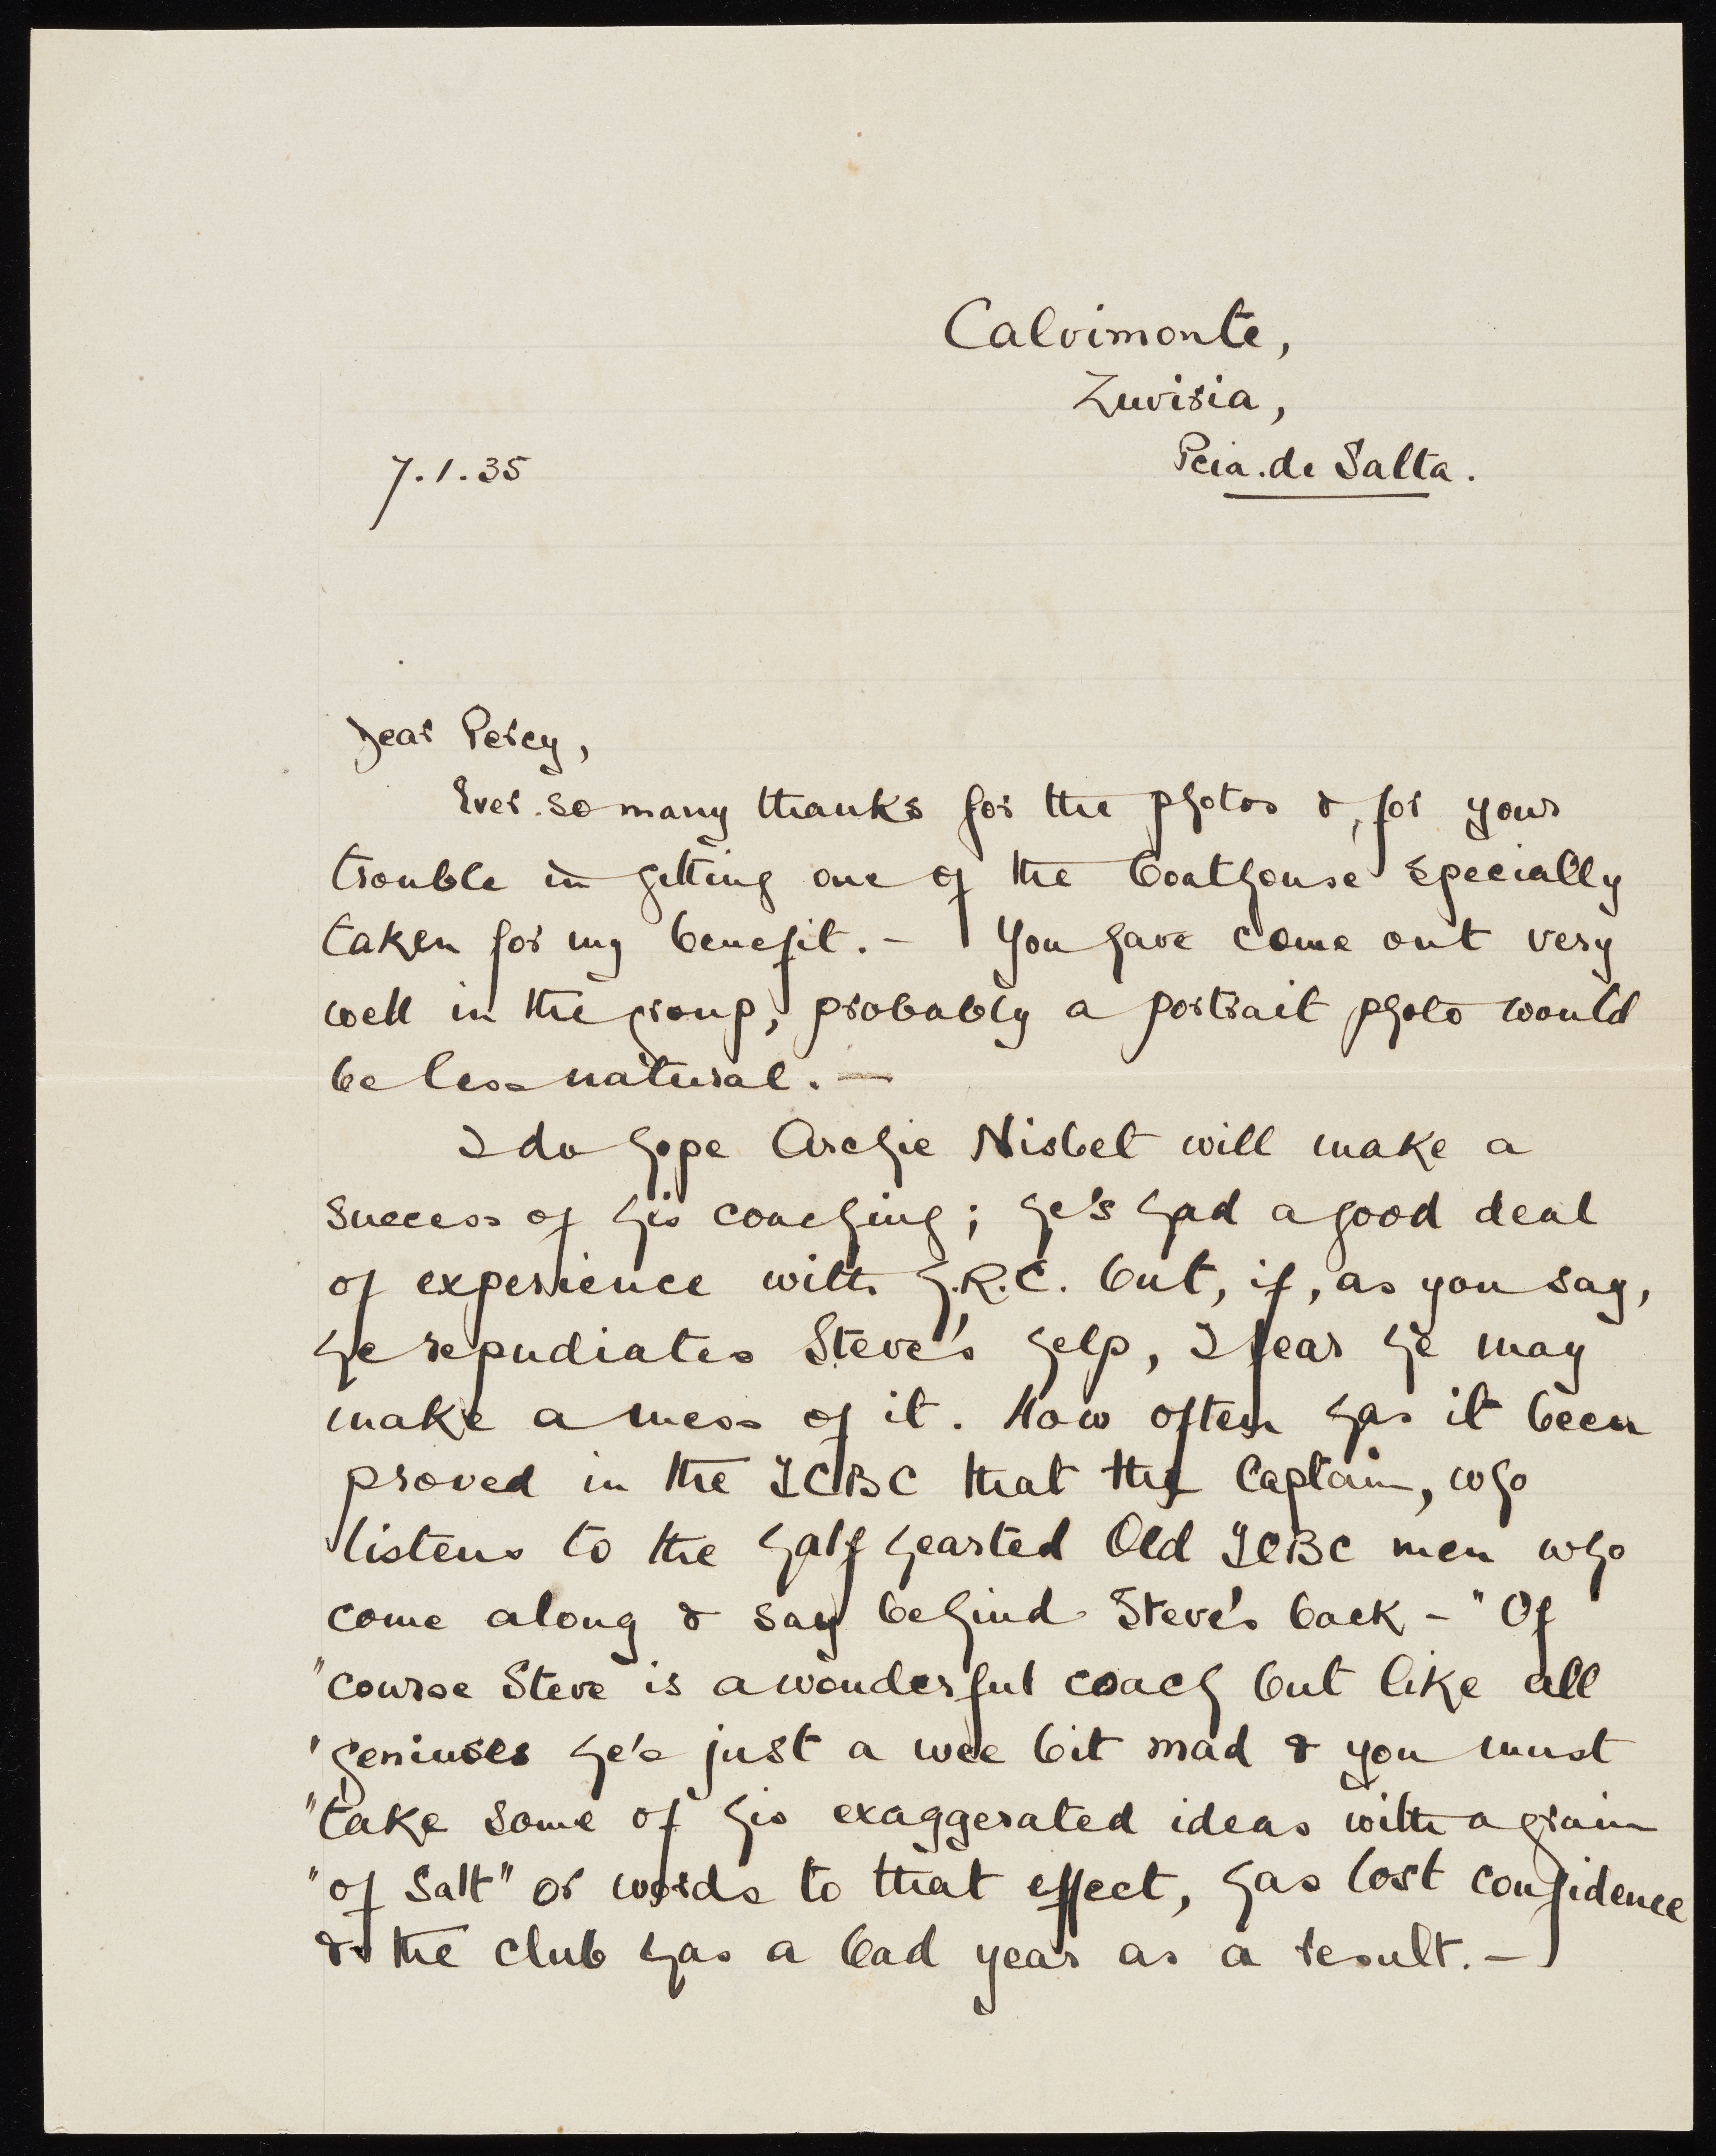 Calvimonte,
Zuviria,
Pcia. de Salta.
7.1.35
Dear Percy,
Ever so many thanks for the photos & for your
trouble in getting one of the boathouse specially
taken for my benefit. – You have come out very
well in the group, probably a portrait photo would
be less natural. —
I do hope Archie Nisbet will make a
success of his coaching; he's had a good deal
of experience with L.R.C. but, if, as you say,
he repudiates Steve's help, I fear he may
make a mess of it. How often has it been
proved in the JCBC that the Captain, who
listens to the half hearted Old JCBC men who
come along & say behind Steve's back – "Of
"course Steve is a wonderful coach but like all
"geniuses he's just a wee bit mad & you must
"take some of his exaggerated ideas with a grain
"of salt" or words to that effect, has lost confidence
& the club has a bad year as a result. –